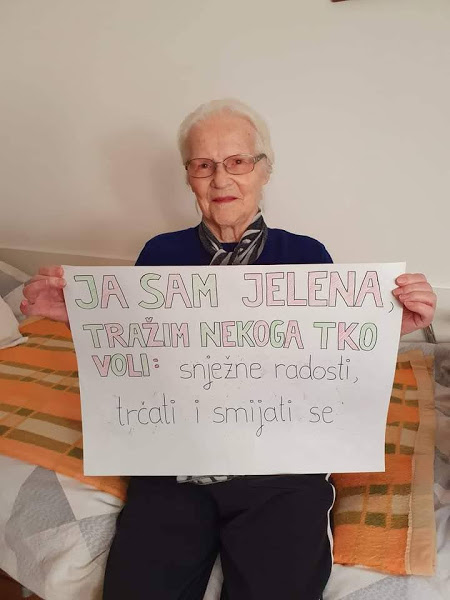 JA SAM JELENA,
TRAŽIM NEKOGA TKO
VOLI: snježne radosti,
trčati i smijati se